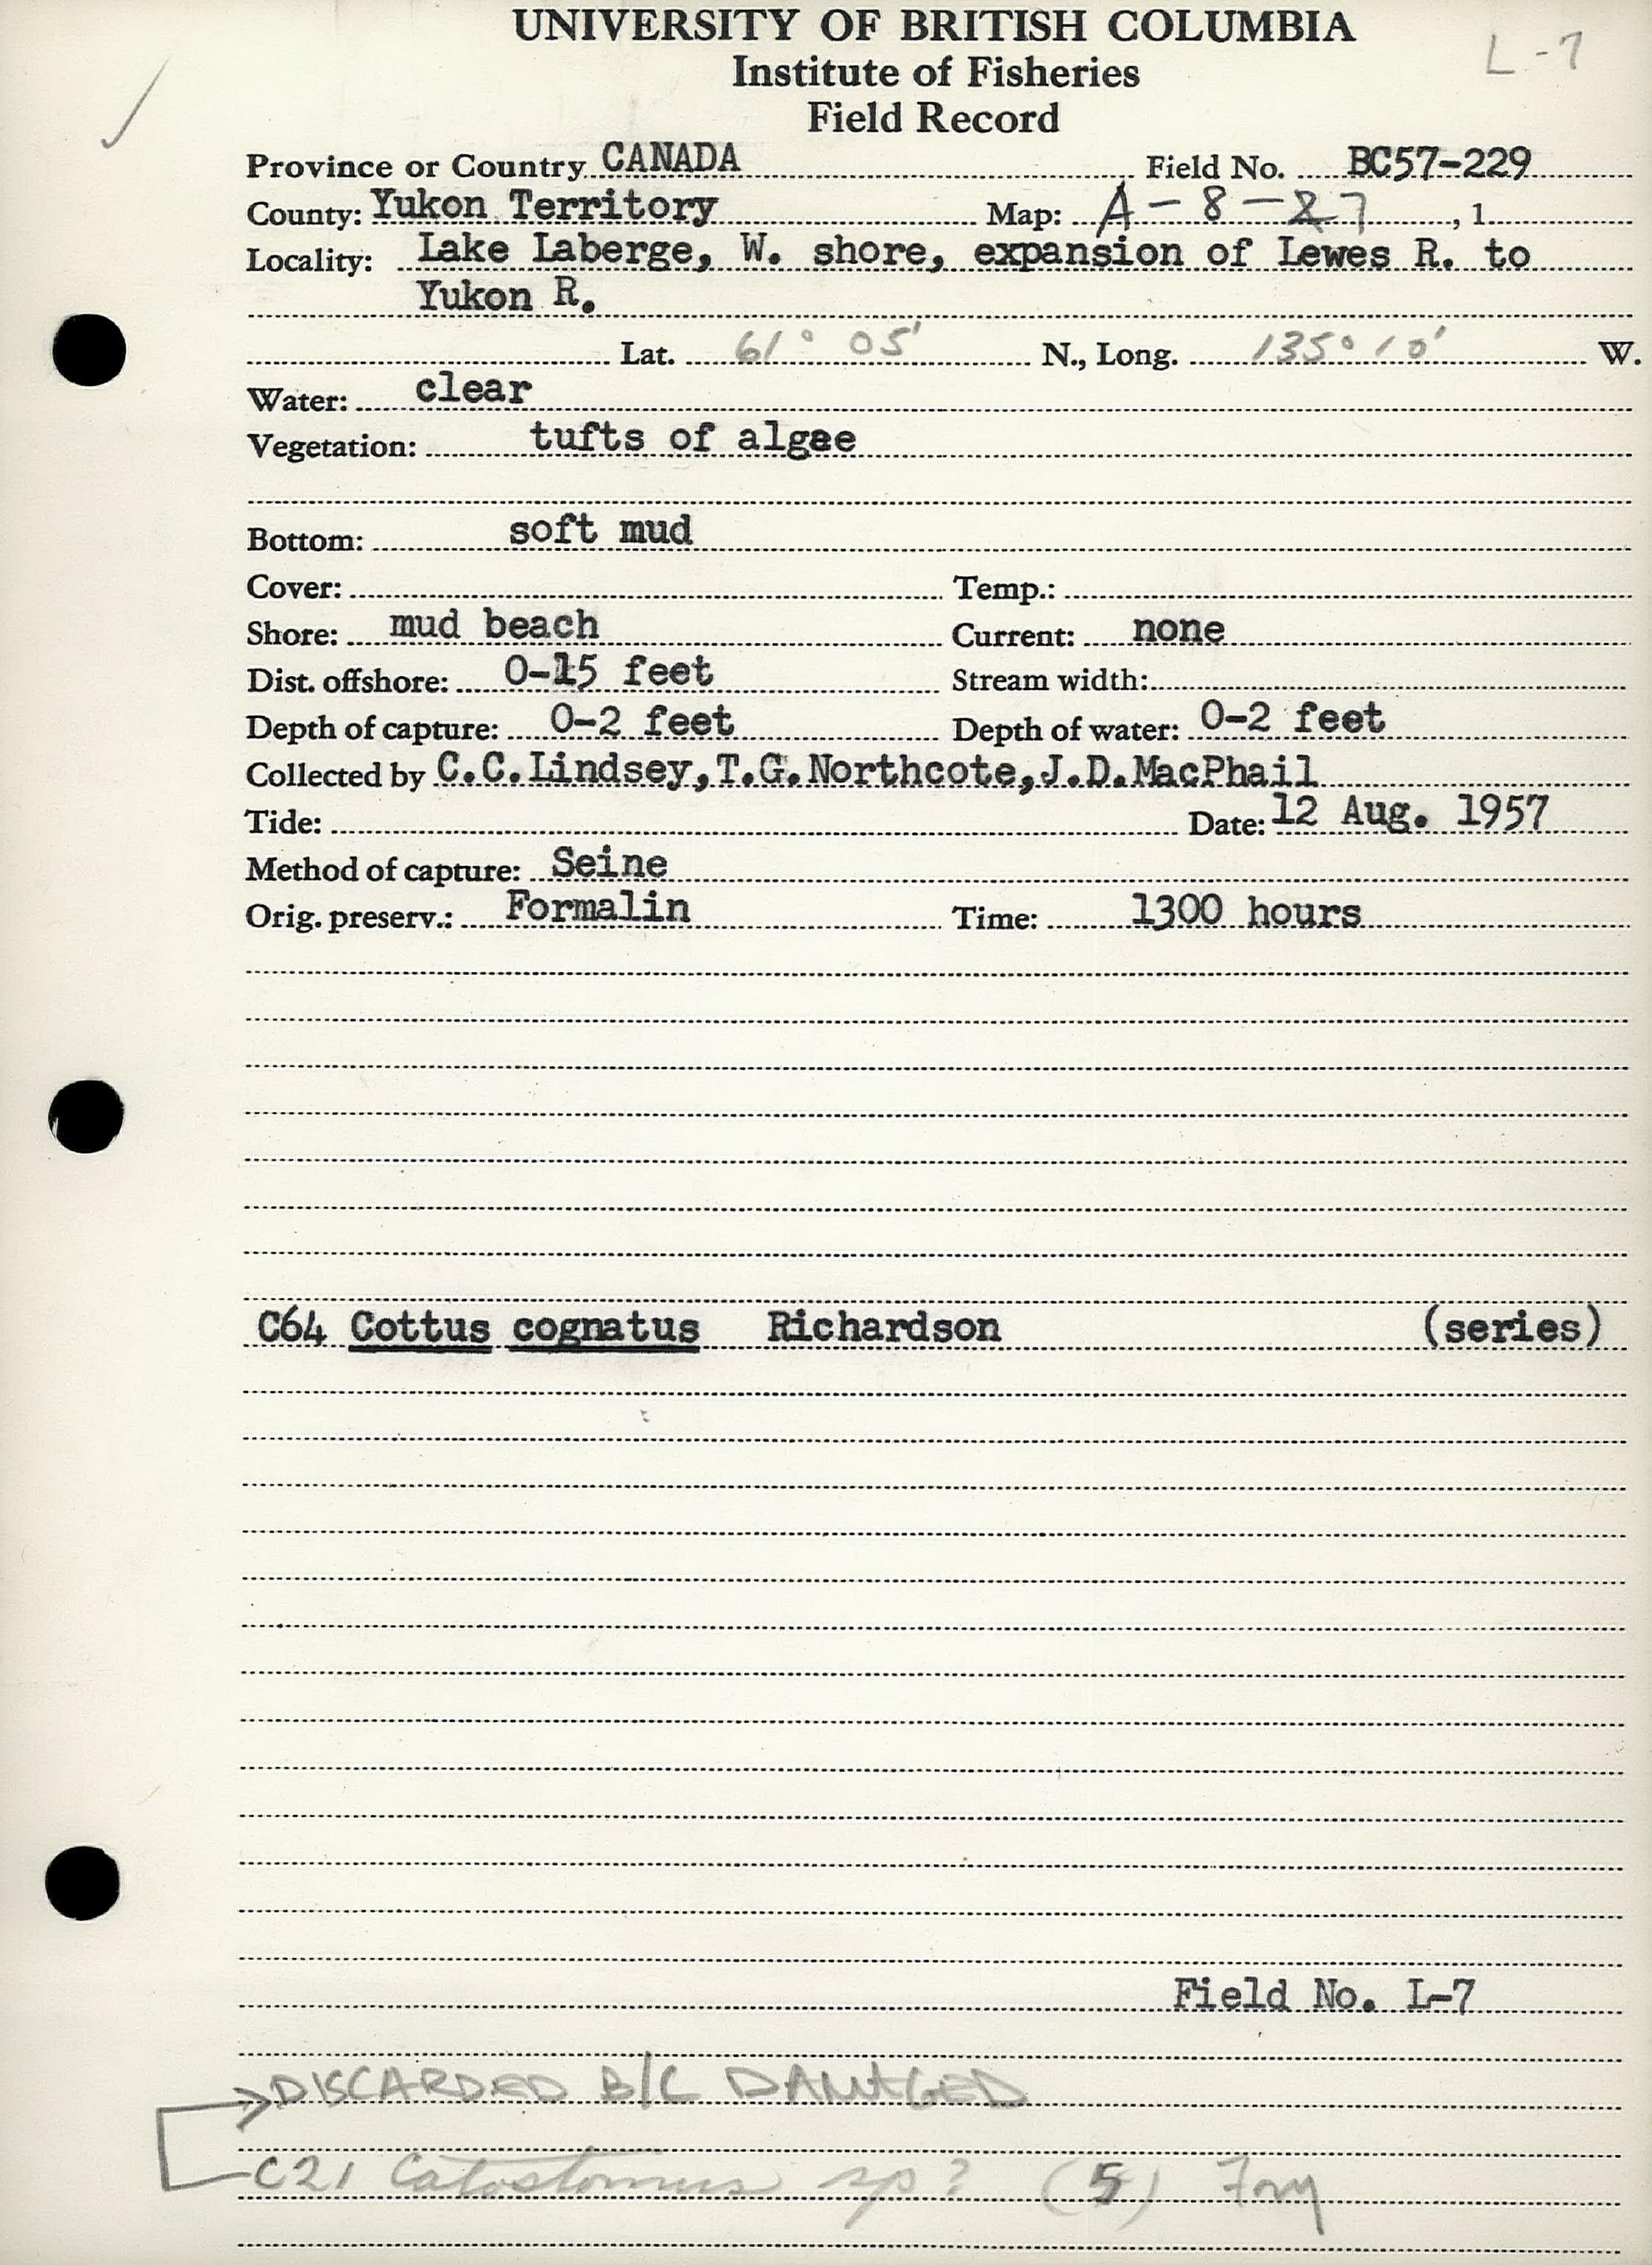 UNIVERSITY OF BRITISH COLUMBIA
L-7
Institute of Fisheries
Field Record
Province or Country CANADA Field No. BC57-229
County: Yukon Territory Map: A-8-27, 1
Locality: Lake Laberge, W. shore, expansion of Lewes R. to
Yukon R.
Lat. 61° 05' N., Long. 135° 10' W.
Water: clear
Vegetation: tufts of algae
Bottom: soft mud
Cover: Temp.:
Shore: mud beach Current: none
Dist. offshore: 0-15 feet Stream width:
Depth of capture: 0-2 feet Depth of water: 0-2 feet
Collected by C.C.Lindsey,T.G.Northcote,J.D.MacPhail
Tide: Date: 12 Aug. 1957
Method of capture: Seine
Orig. preserv.: Formalin Time: 1300 hours
C64 Cottus cognatus Richardson (series)
Field No. L-7
DISCARDED B/C DAMAGED
C21 Catostomus sp? (5) Fry